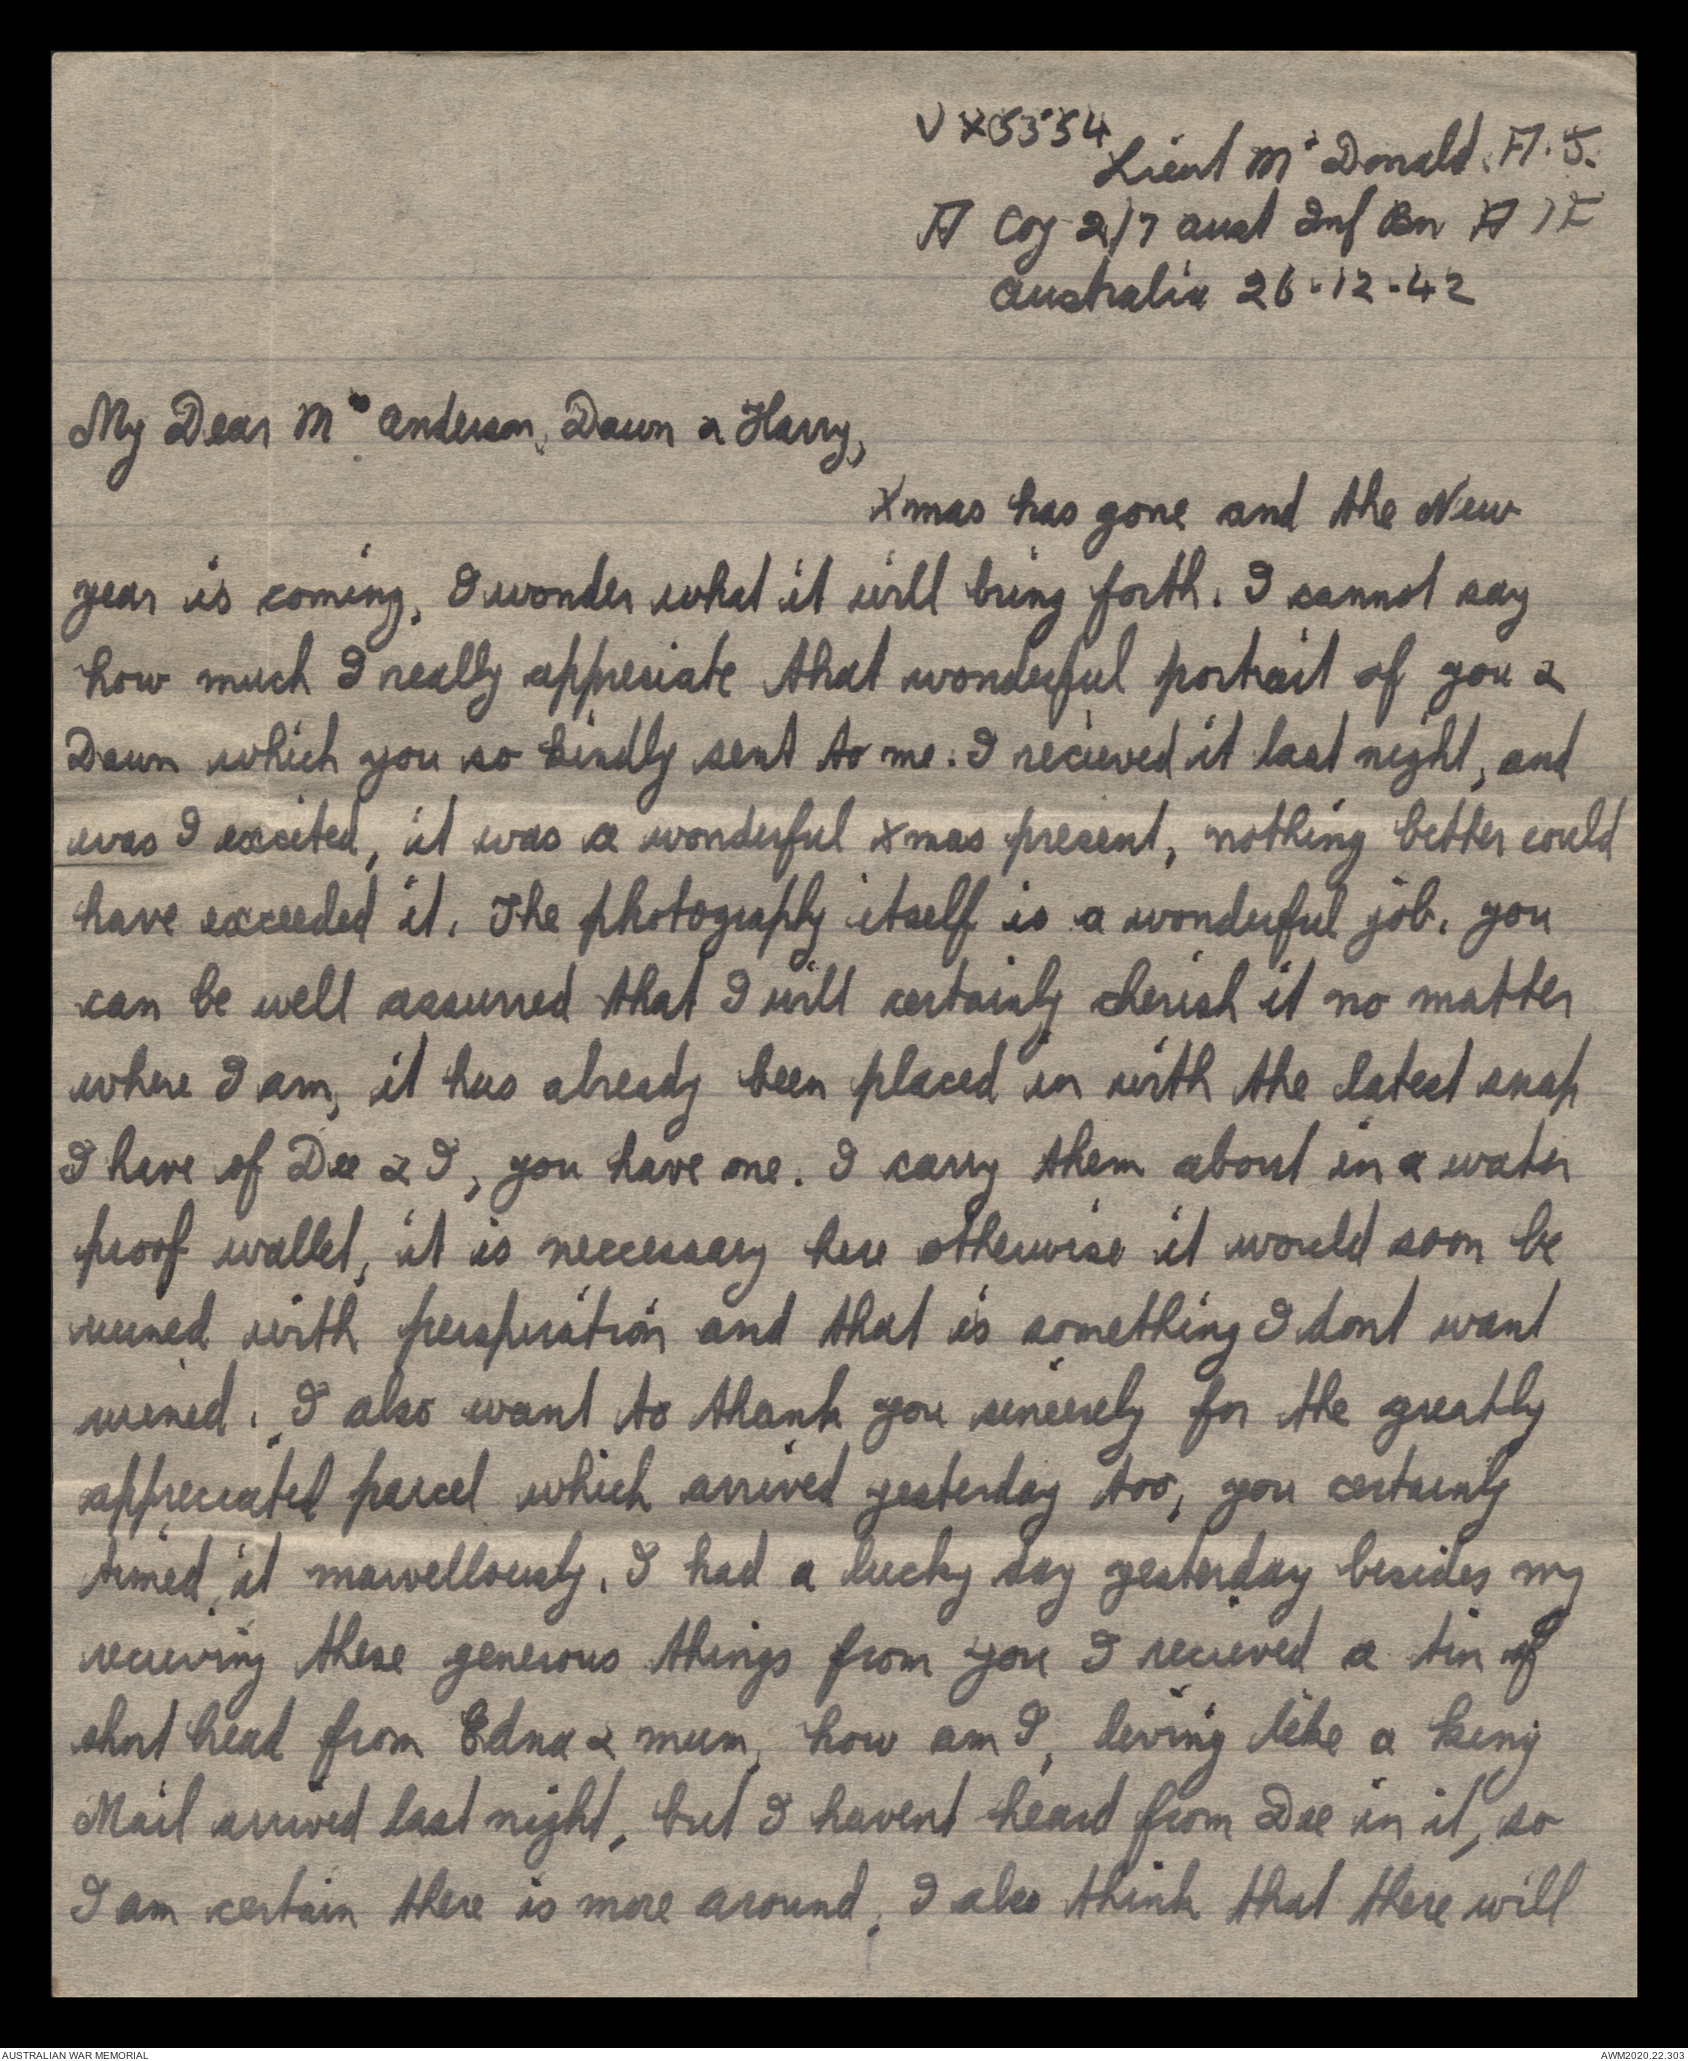 VX5354
Lieut Mc Donald. A. J.
A Coy 2/7 Aust Inf Bn A I F
Australia 26.12.42
My Dear Mrs Anderson, Dawn & Harry,
Xmas has gone and the New
year is coming, I wonder what it will bring forth. I cannot say
how much I really appreciate that wonderful portrait of you &
Dawn which you so kindly sent to me. I recieved it last night, and
was I excited, it was a wonderful xmas present, nothing better could
have exceeded it. The photography itself is a wonderful job. you
can be well assurred that I will certainly cherish it no matter
where I am, it has already been placed in with the latest snap
I have of Dee & I, you have one. I carry them about in a water
proof wallet, it is neccessary here otherwise it would soon be
ruined with perspiration and that is something I dont want
ruined. I also want to thank you sincerely for the greatly
appreciated parcel which arrived yesterday too, you certainly
timed it marvellously. I had a lucky day yesterday besides my
recieving these generous things from you I recieved a tin of
short bread from Edna & mum, how am I, living like a king
Mail arrived last night, but I havent heard from Dee in it, so
I am certain there is more around, I also think that there will
AUSTRALIAN WAR MEMORIAL
AWM2020.22.303